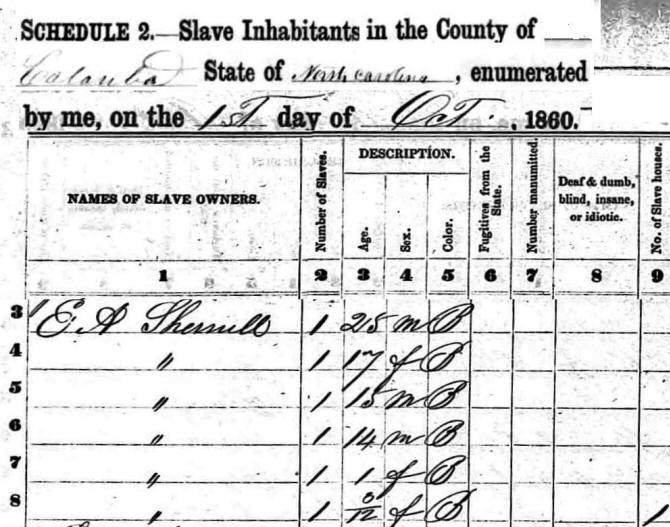 SCHEDULE 2.—Slave Inhabitants in the County of
Catawba State of North Carolina, enumerated
by me, on the 1st day of Oct., 1860.
NAMES OF SLAVE OWNERS. Number of Slaves. DESCRIPTION. Age. Sex. Color. Fugitives from the State. Number manumitted. Deaf & dumb, blind, insane, or idiotic. No. of Slave houses.
1 2 3 4 5 6 7 8 9
3 E A Sherrill 1 25 m B
4 " 1 17 f B
5 " 1 15 m B
6 " 1 14 m B
7 " 1 1 f B
8 " 1 /12 f B 1